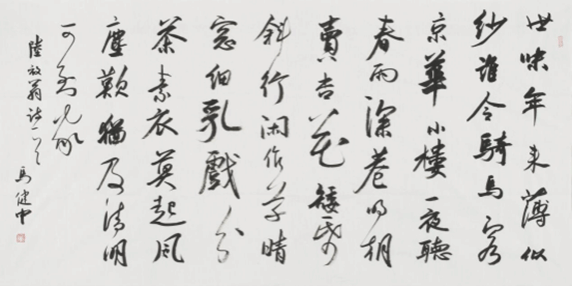 世味年来薄似
紗誰令騎馬客
京華小樓一夜聽
春雨深巷明朝
賣杏花矮紙
斜行闲作草晴
窗細乳戲分
茶素衣莫起風
塵歎猶及清明
可到家
陸放翁詩一首
馬健中